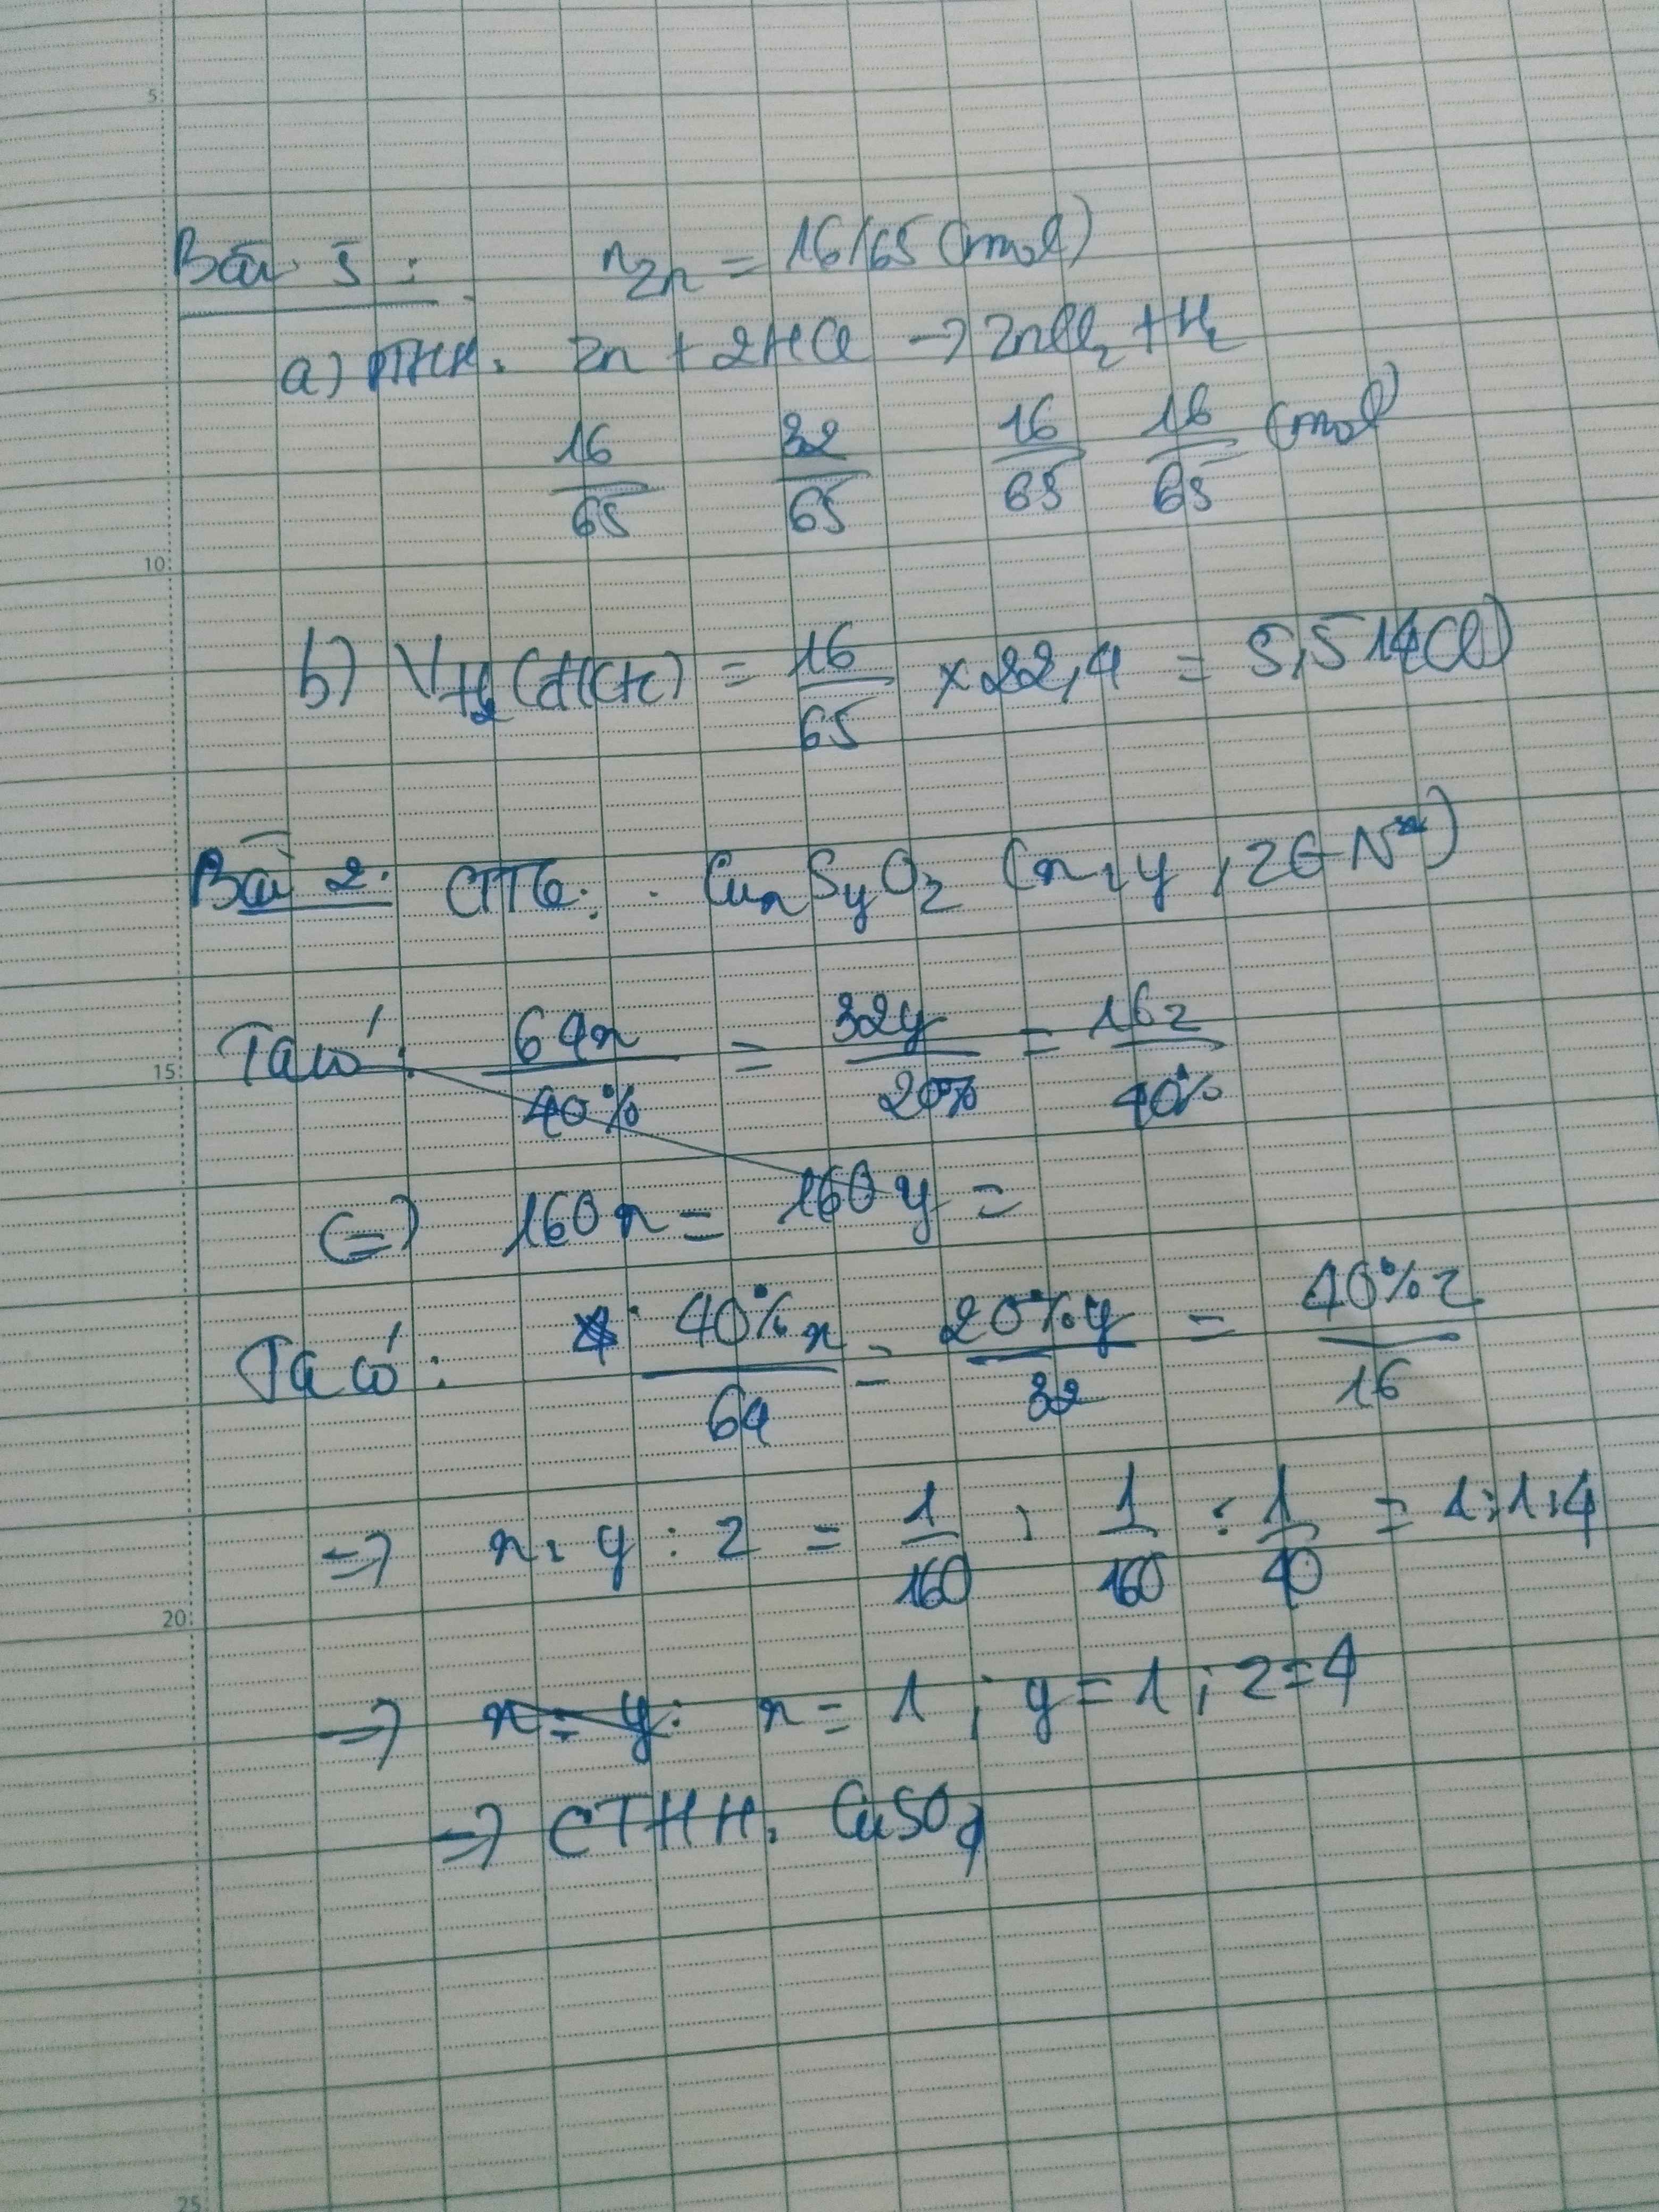 5
Bài 3: nZn = 16/65 (mol)
a) PTHH: Zn + 2HCl → ZnCl₂ + H₂
16/65 32/65 16/65 16/65 (mol)
10
b) VH₂(đktc) = 16/65 × 22,4 = 5,514(l)
Bài 2: CTTQ: CuxSyOz (x, y, z ∈ N*)
15
Ta có: 64x/40% = 32y/20% = 16z/40%
(=) 160x = 160y =
Ta có: 40%x/64 = 20%y/32 = 40%z/16
=) x : y : z = 1/160 : 1/160 : 1/40 = 1:1:4
20
=) x = y: x = 1 ; y = 1 ; z = 4
=) CTHH: CuSO₄
25